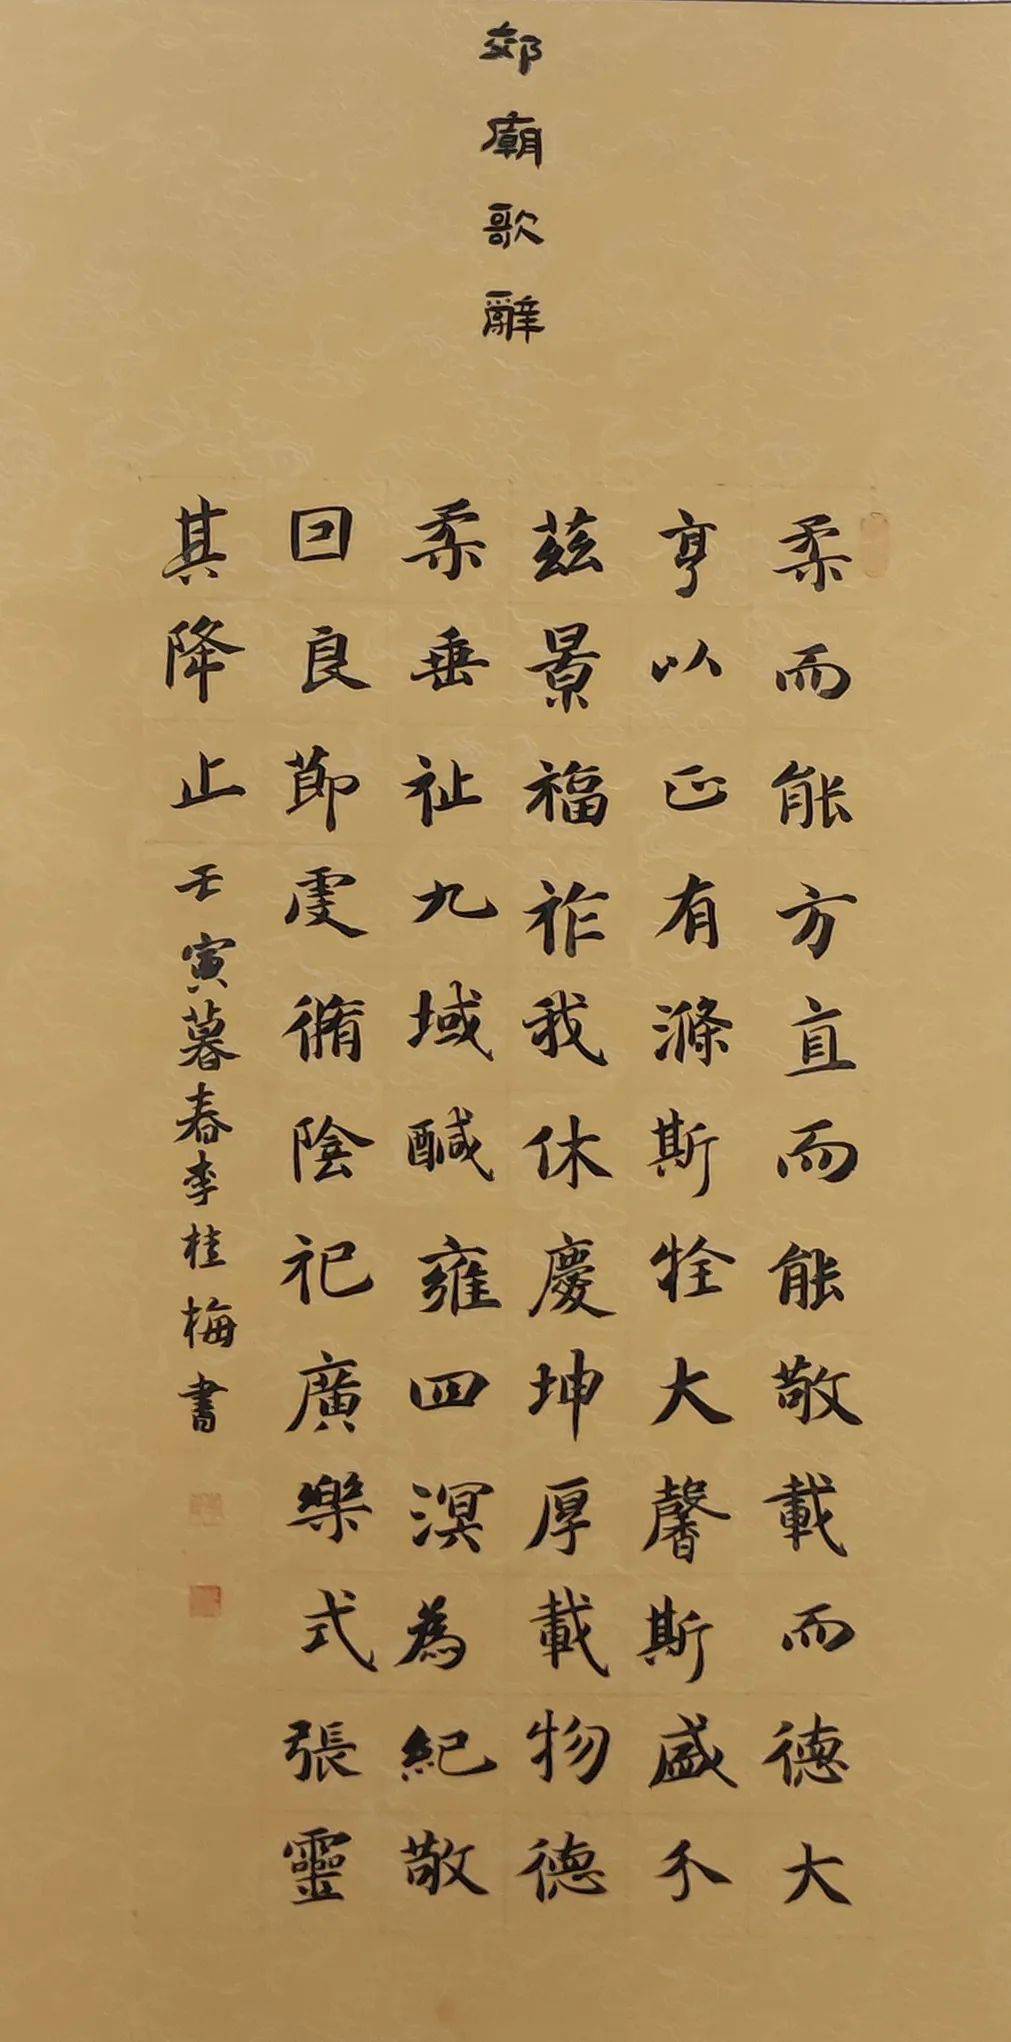 郊廟歌辭
柔而能方直而能敬載而德大
亨以正有滌斯牷大馨斯盛介
茲景福祚我休慶坤厚載物德
柔垂祉九域醎雍四溟為紀敬
回良節虔脩陰祀廣樂式張靈
其降止
壬寅暮春李桂梅書